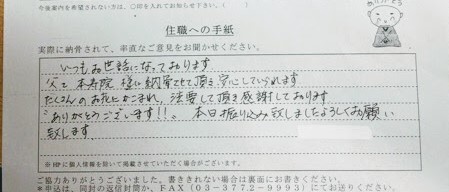 今後案内を希望されない方は、〇印を入れてお知らせ下さい。(　　)
ありがとう
住職への手紙
実際に納骨されて、率直なご意見をお聞かせください。
いつもお世話になっております
父を本寿院様に納骨させて頂き安心していられます
たくさんのお花にかこまれ、法要して頂き感謝しております
ありがとうございます!!。本日振り込み致しましたよろしくお願い
致します
※HPに個人情報を除いて掲載させていただく場合がございます。
ご協力ありがとうございました。書ききれない場合は裏面にお書きください。
*申込は、同封の返信封筒か、FAX(03-3772-9993)にてお送りください。